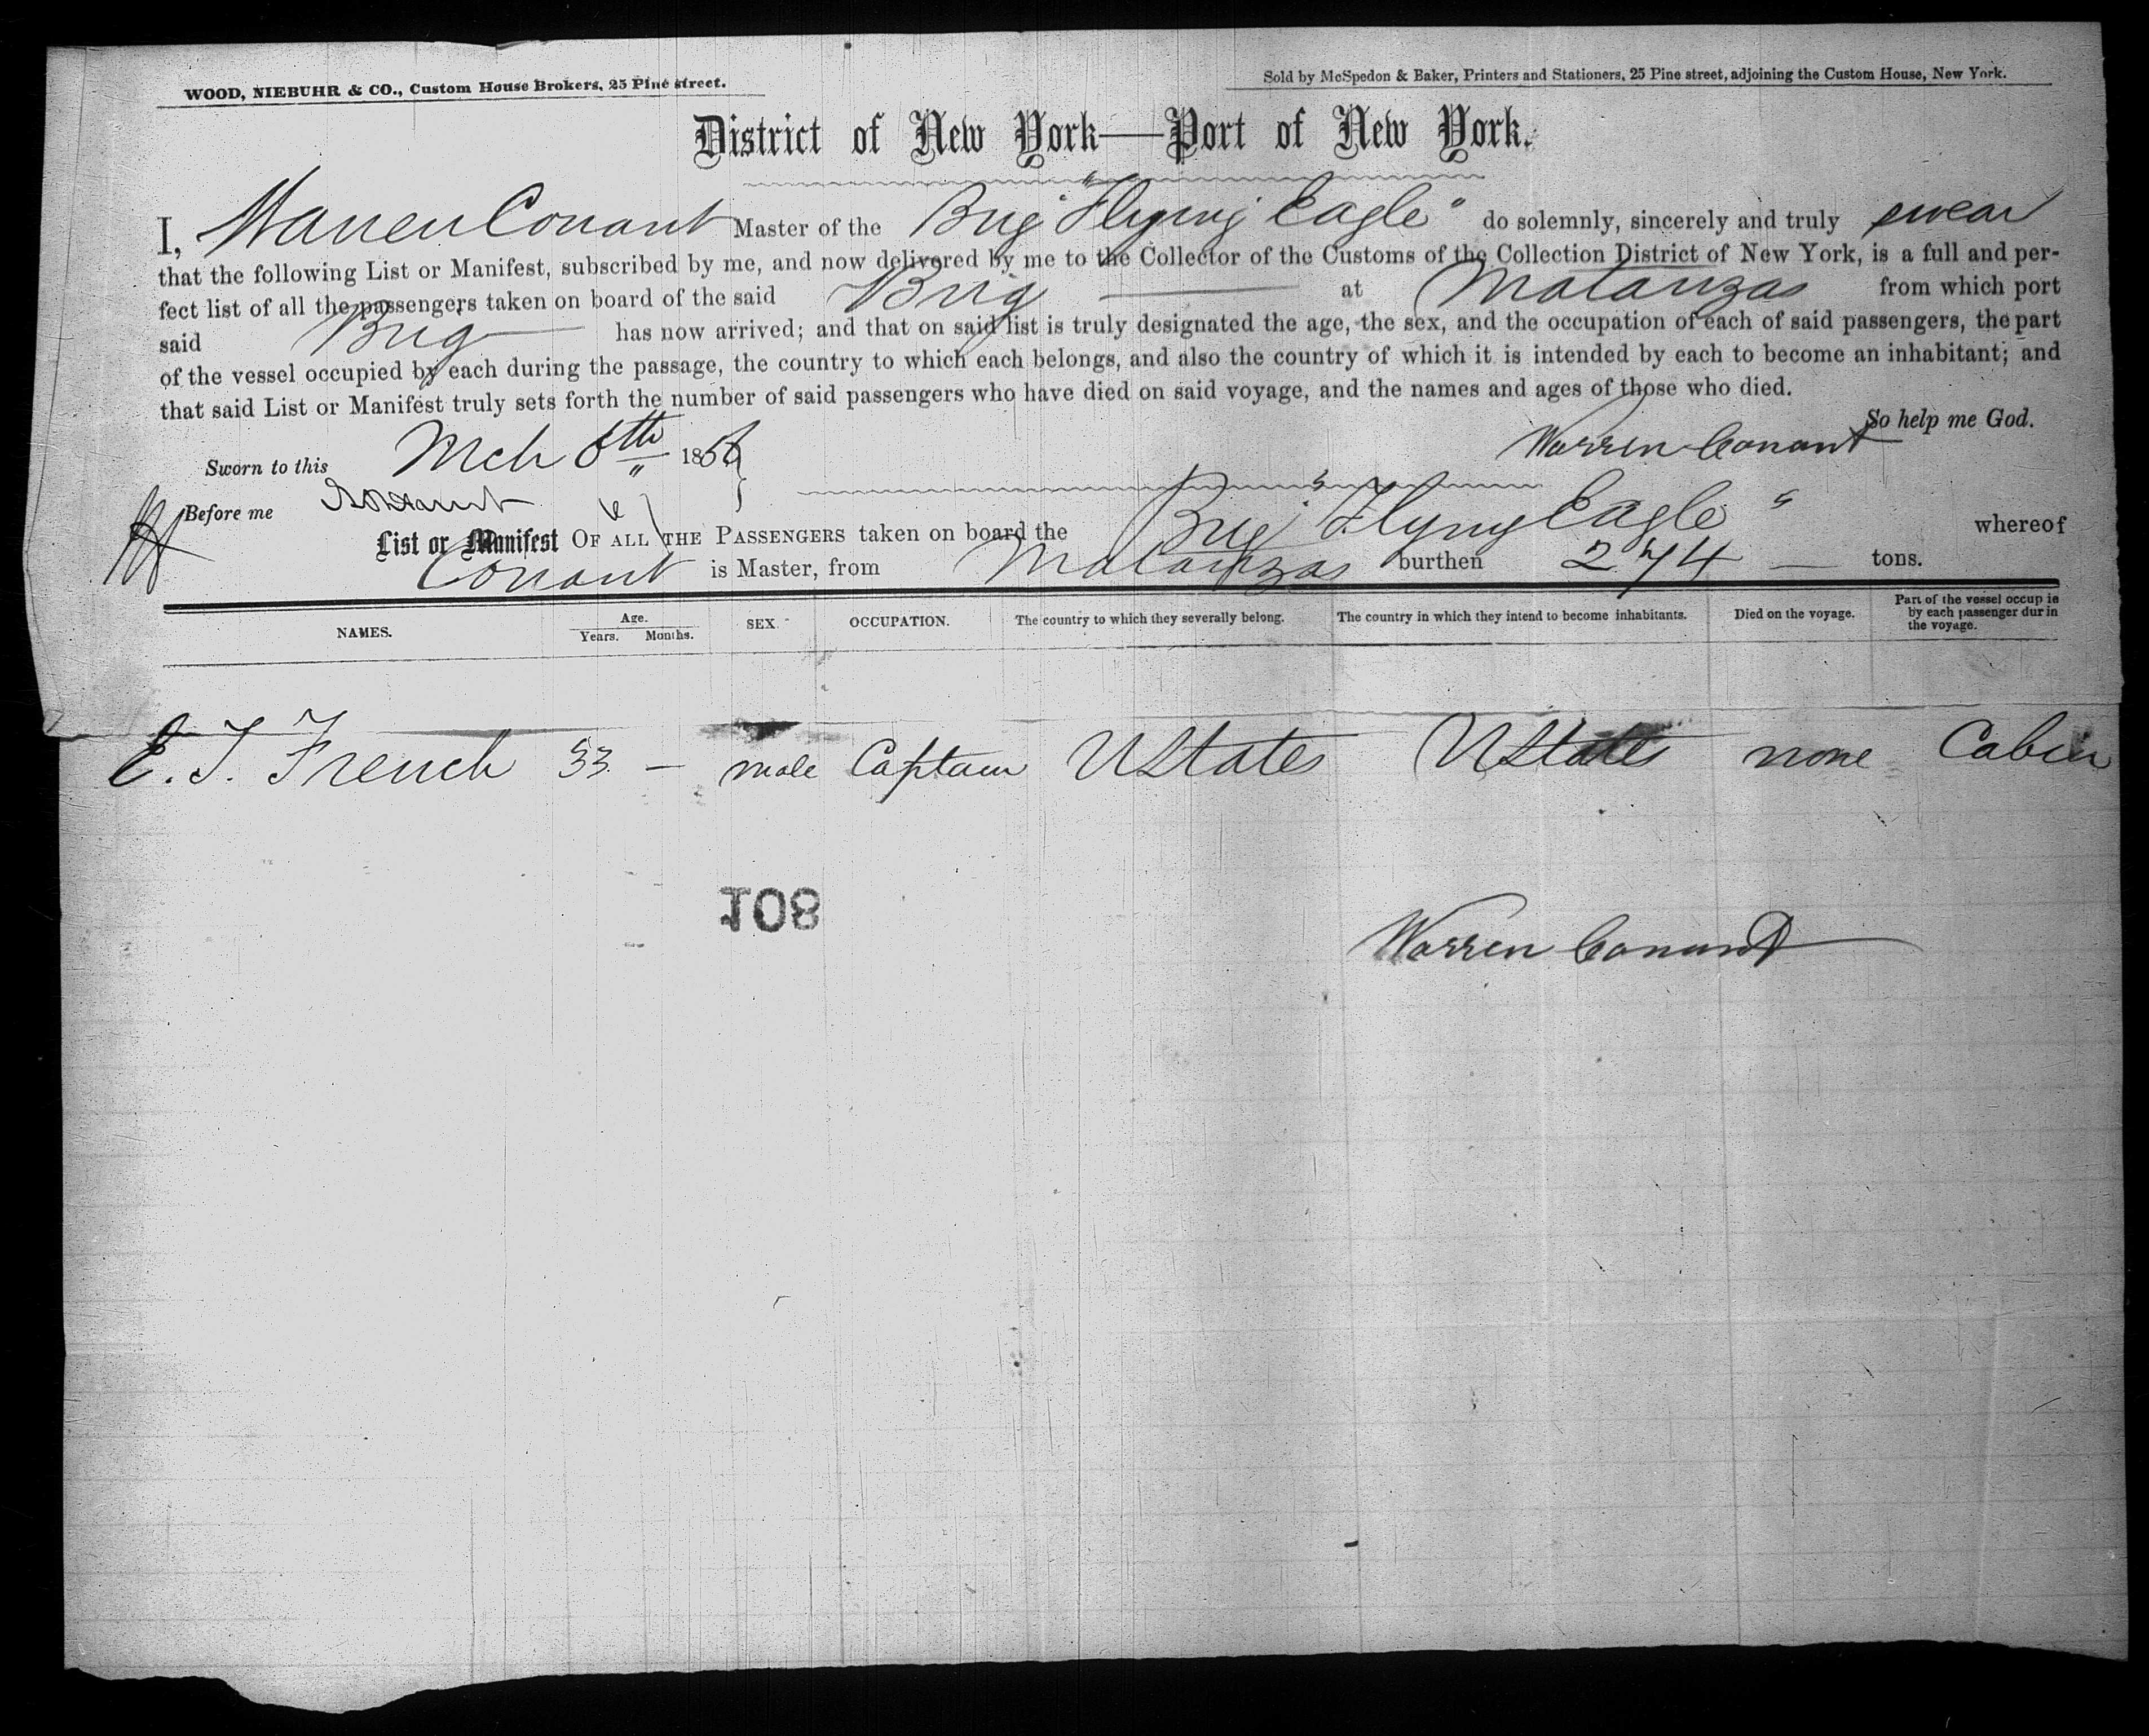 WOOD, NIEBUHR & CO., Custom House Brokers, 25 Pine street.
Sold by McSpedon & Baker, Printers and Stationers, 25 Pine street, adjoining the Custom House, New York.
District of New York—Port of New York.
I, Warren Conant Master of the Brig "Flying Eagle" do solemnly, sincerely and truly swear
that the following List or Manifest, subscribed by me, and now delivered by me to the Collector of the Customs of the Collection District of New York, is a full and per-
fect list of all the passengers taken on board of the said Brig at Matanzas from which port
said Brig has now arrived; and that on said list is truly designated the age, the sex, and the occupation of each of said passengers, the part
of the vessel occupied by each during the passage, the country to which each belongs, and also the country of which it is intended by each to become an inhabitant; and
that said List or Manifest truly sets forth the number of said passengers who have died on said voyage, and the names and ages of those who died.
So help me God.
Warren Conant
Sworn to this Mch 8th 1856
Before me
List or Manifest OF ALL THE PASSENGERS taken on board the Brig "Flying Eagle" whereof
Conant is Master, from Matanzas burthen 274 tons.
NAMES. Age. Years. Months. SEX. OCCUPATION. The country to which they severally belong. The country in which they intend to become inhabitants. Died on the voyage. Part of the vessel occup ie by each passenger dur in the voyage.
E. T. French 33 — male Captain UStates UStates none Cabin
108
Warren Conant